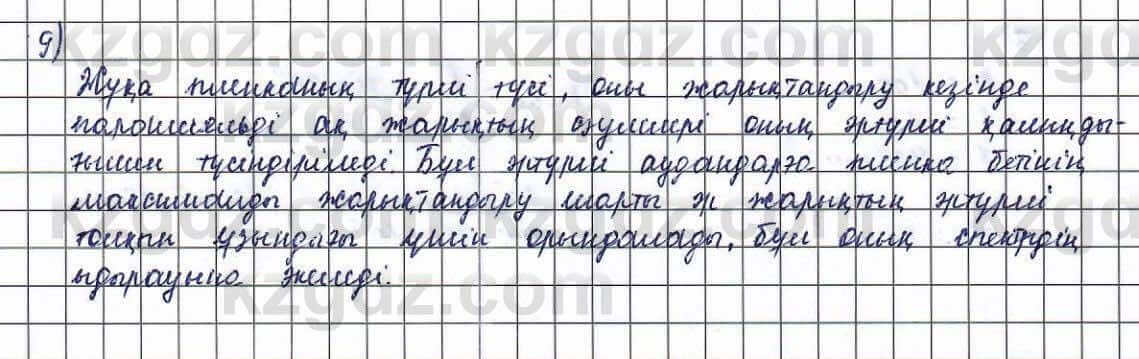 9)
Жұқа пленканың түрлі түсі, оны жарықтандыру кезінде
параллельді ақ жарықтың сәулелері оның әртүрлі қалыңды-
ғымен түсіндіріледі. Бұл әртүрлі аудандарға пленка бетінің
максималды жарықтандыру шарты ж жарықтың әртүрлі
толқын ұзындығы үшін орындалады, бұл оның спектрдің
ыдырауына әкеледі.
kzgdz.com kzgdz.com
kzgdz.com kzgdz.com
kzgdz.com